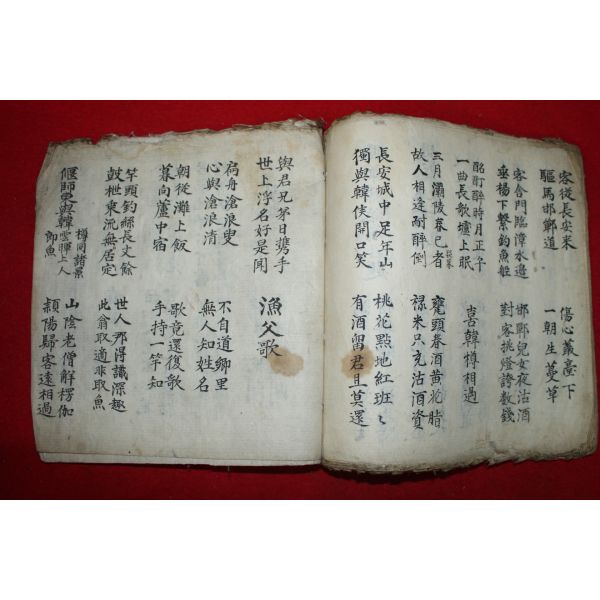 客從長安來 傷心叢臺下
驅馬邯鄲道 一朝生蔓草
客舍門臨漳水邊 邯鄲兒女夜沽酒
垂楊下繫釣魚舡 對客挑燈誇數錢
酩酊醉時月正午
一曲長歌壚上眠
喜韓樽相過
三月灞陵春已者 甕頭春酒黄花脂
故人相逢耐醉倒 祿米只充沽酒資
長安城中足年山 桃花點地紅班〻
獨與韓侯開口笑 有酒留君且莫還
與君兄弟日携手
世上浮名好是閑
漁父歌
扁舟滄浪叟 不自道鄉里
心與滄浪清 無人知姓名
朝從灘上飯 歌竟還復歌
暮向蘆中宿 手持一竿知
竿頭釣絲長丈餘 世人那得識深趣
鼓枻乘流無居定 此翁取適非取魚
偃師東與韓樽同諸景雲暉上人即魚
山陰老僧解楞伽
潁陽歸客遠相過